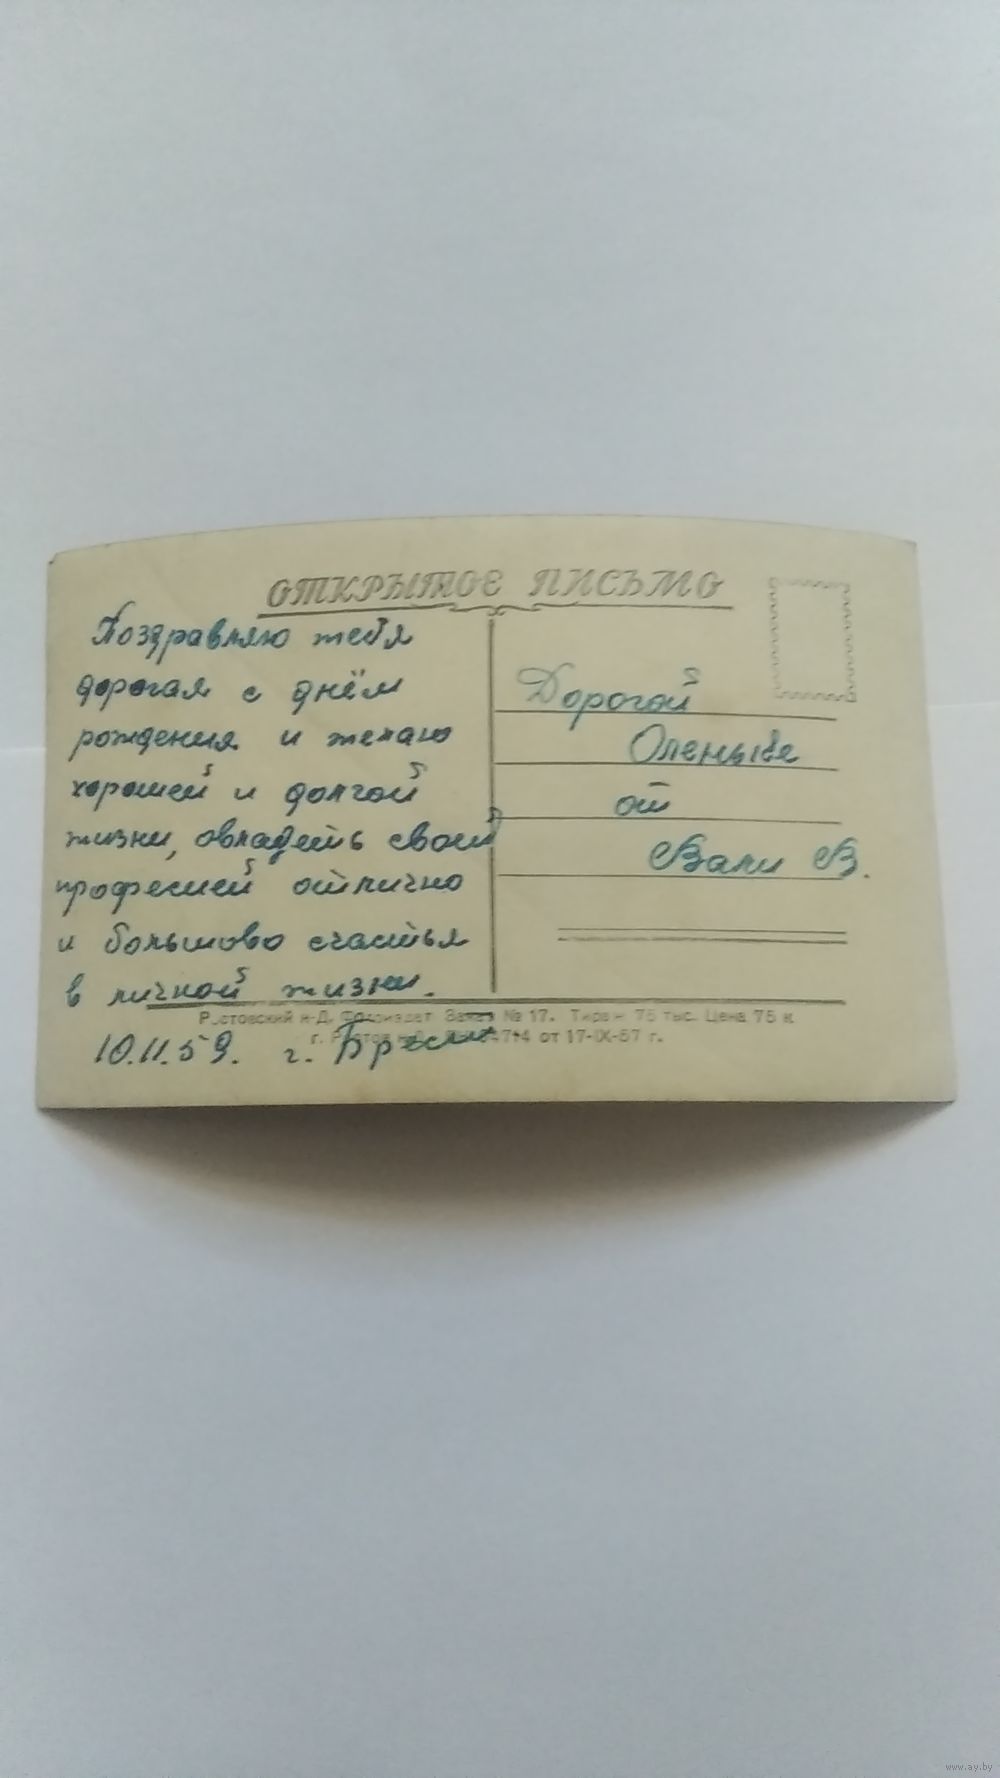 ОТКРЫТОЕ ПИСЬМО
Поздравляю тебя
дорогая с днём
рождения и желаю
хорошей и долгой
жизни, овладеть своей
професией отлично
и большово счастья
в личной жизни.
10.11.59. г. Брест
Дорогой
Оленьке
от
Вали В.
Ростовский н-Д. Заказ № 17. Тираж 75 тыс. Цена 75 к
г. от 17-IX-57 г.
www.ay.by